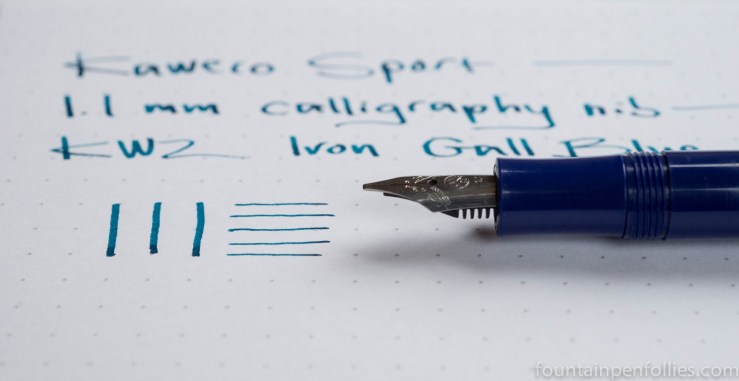 Kaweco Sport
1.1 mm calligraphy nib
KWZ Iron Gall Blue
fountainpenfollies.com